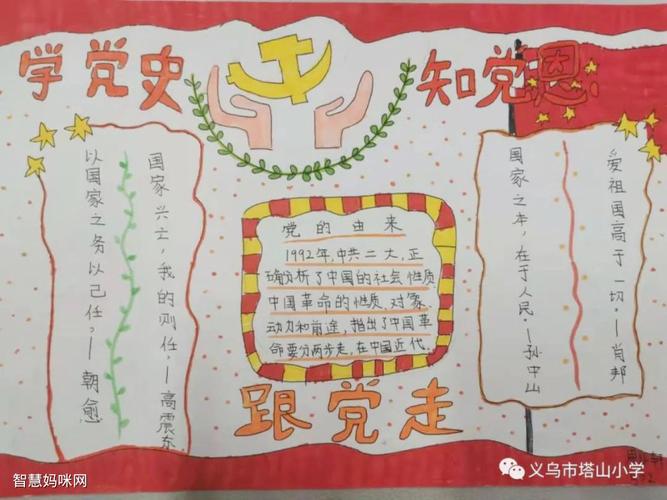 学党史
知党恩
国家兴亡,我的则任。——高震东
以国家之务以己任。——朝愈
党的由来
1992年,中共二大,正
确分析了中国的社会性质
中国革命的性质、对象、
动力和前途,指出了中国革
命要分两步走,在中国近代。
爱祖国高于一切。——肖邦
国家之本,在于人民。——孙中山
跟党走
智慧妈咪网
义乌市塔山小学